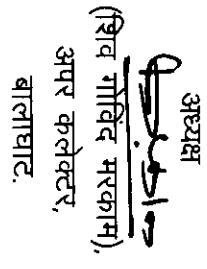 अध्यक्ष
(शिव गोविंद मरकाम)
अपर कलेक्टर,
बालाघाट.